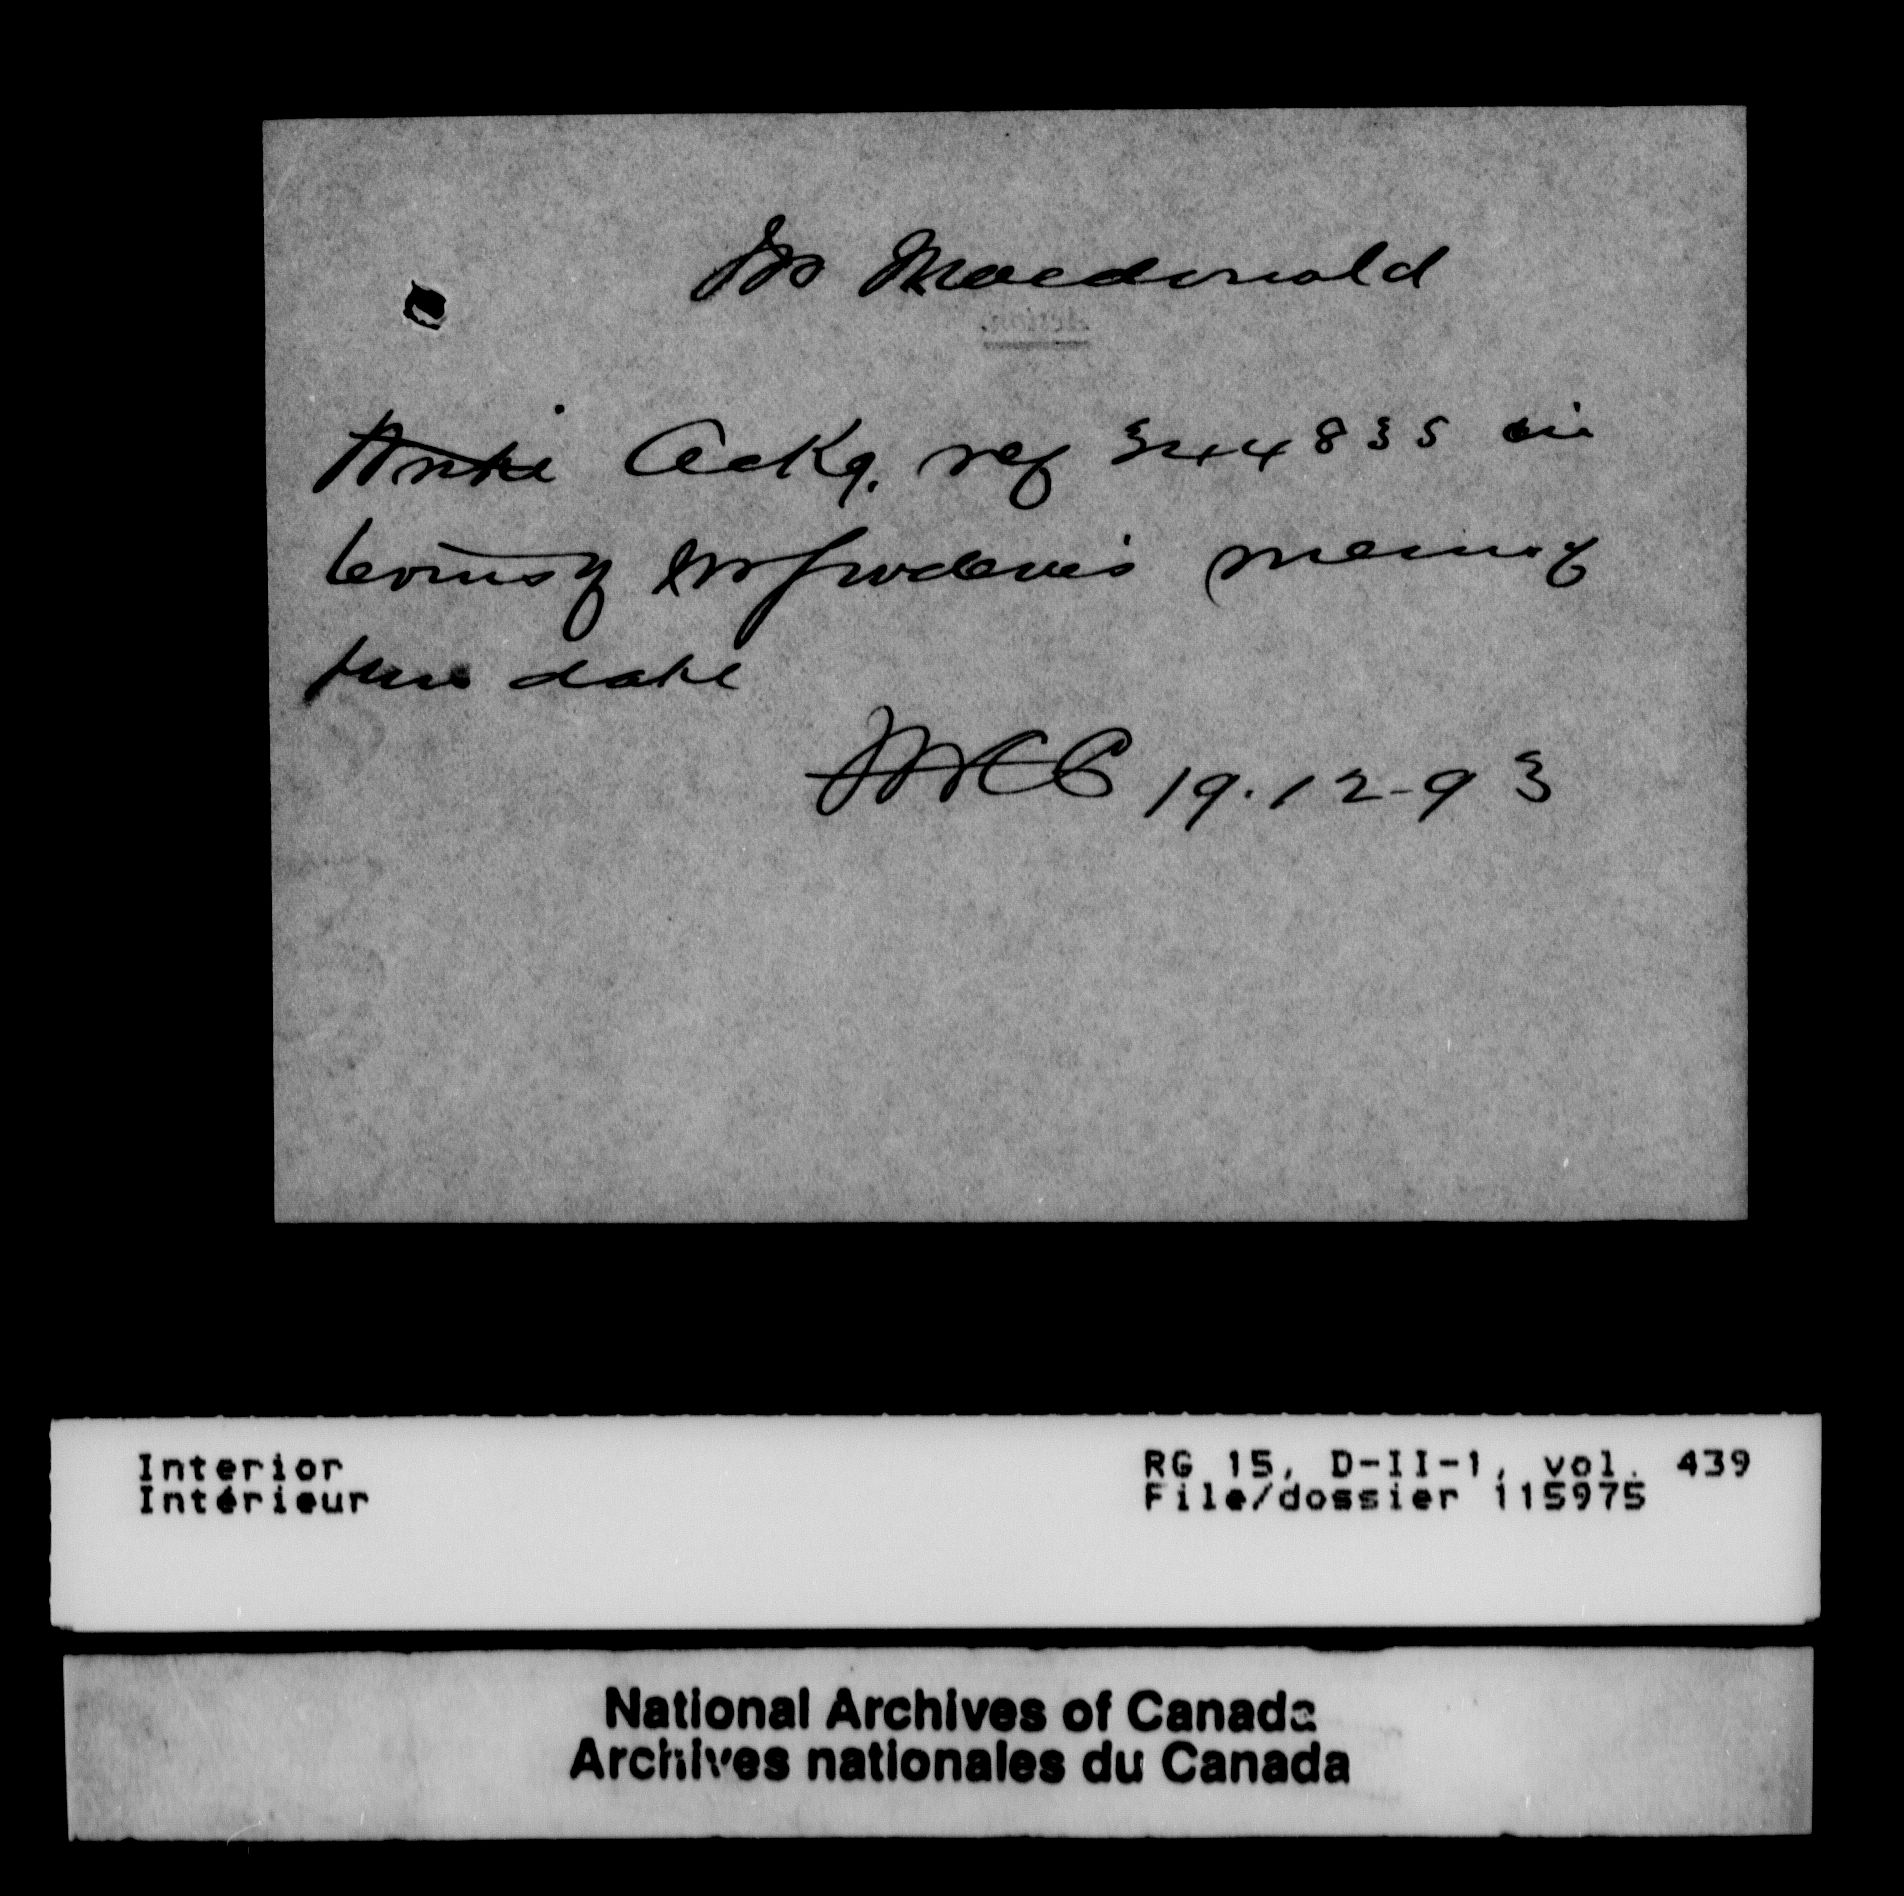 Mr Macdonald
Write Ackg. ref 344835 in
terms of Mr memo of
this date
19.12-93
Interior
Intérieur
RG 15, D-II-1, vol. 439
File/dossier 115975
National Archives of Canada
Archives nationales du Canada